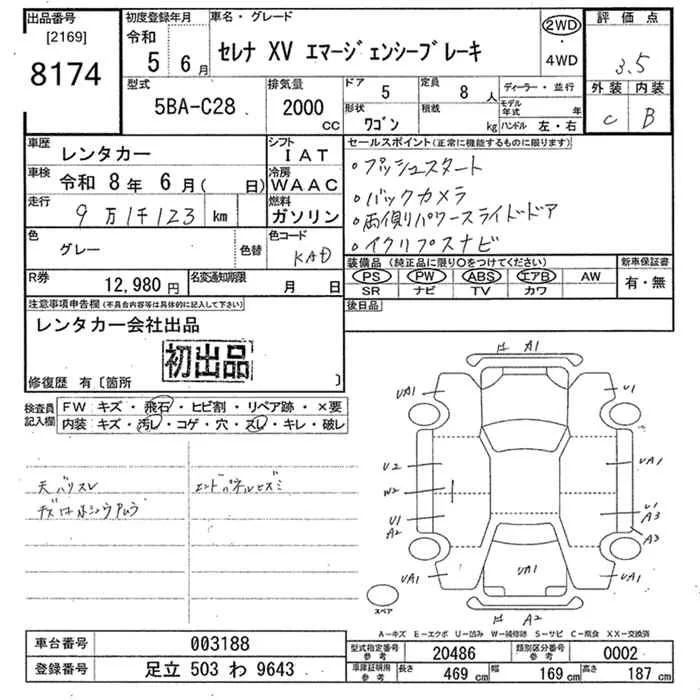 出品番号
[2169]
8174
初度登録年月
令和
5 6月
車名・グレード
セレナ XV エマージェンシーブレーキ
2WD
・
4WD
評価点
3.5
外装 内装
C B
型式
5BA-C28
排気量
2000
CC
ドア
5
定員
8 人
形状
ワゴン
積載
kg
ディーラー・並行
モデル年式 年
ハンドル 左・右
車歴
レンタカー
シフト
IAT
車検
令和 8年 6月( 日)
冷房
WAAC
走行
9万1千123 km
燃料
ガソリン
色
グレー
色替
色コード
KAD
R券
12,980 円
名変通知期限
月 日
セールスポイント(正常に機能するものに限ります)
・プッシュスタート
・バックカメラ
・両側パワースライドドア
・イクリプスナビ
装備品(純正品に限り○をつけてください)
PS PW ABS エアB AW
SR ナビ TV カワ
新車保証書
有・無
後日品
注意事項申告欄(不具合内容等は具体的に記入して下さい)
レンタカー会社出品
初出品
修復歴 有〔箇所 〕
検査員
記入欄
FW キズ・飛石・ヒビ割・リペア跡・×要
内装 キズ・汚レ・コゲ・穴・スレ・キレ・破レ
天バリスレ
エンドパネルヒズミ
A1
UA1
U1
U2
W2
U1
A2
UA1
U1
A3
A3
UA1
UA1
UA1
A2
スペア
A-キズ E-エクボ U-凹み W-補修跡 S-サビ C-腐食 XX-交換済
車台番号
003188
登録番号
足立 503 わ 9643
型式指定番号
参考
20486
類別区分番号
参考
0002
車庫証明用
参考
長さ
469 cm
幅
169 cm
高さ
187 cm